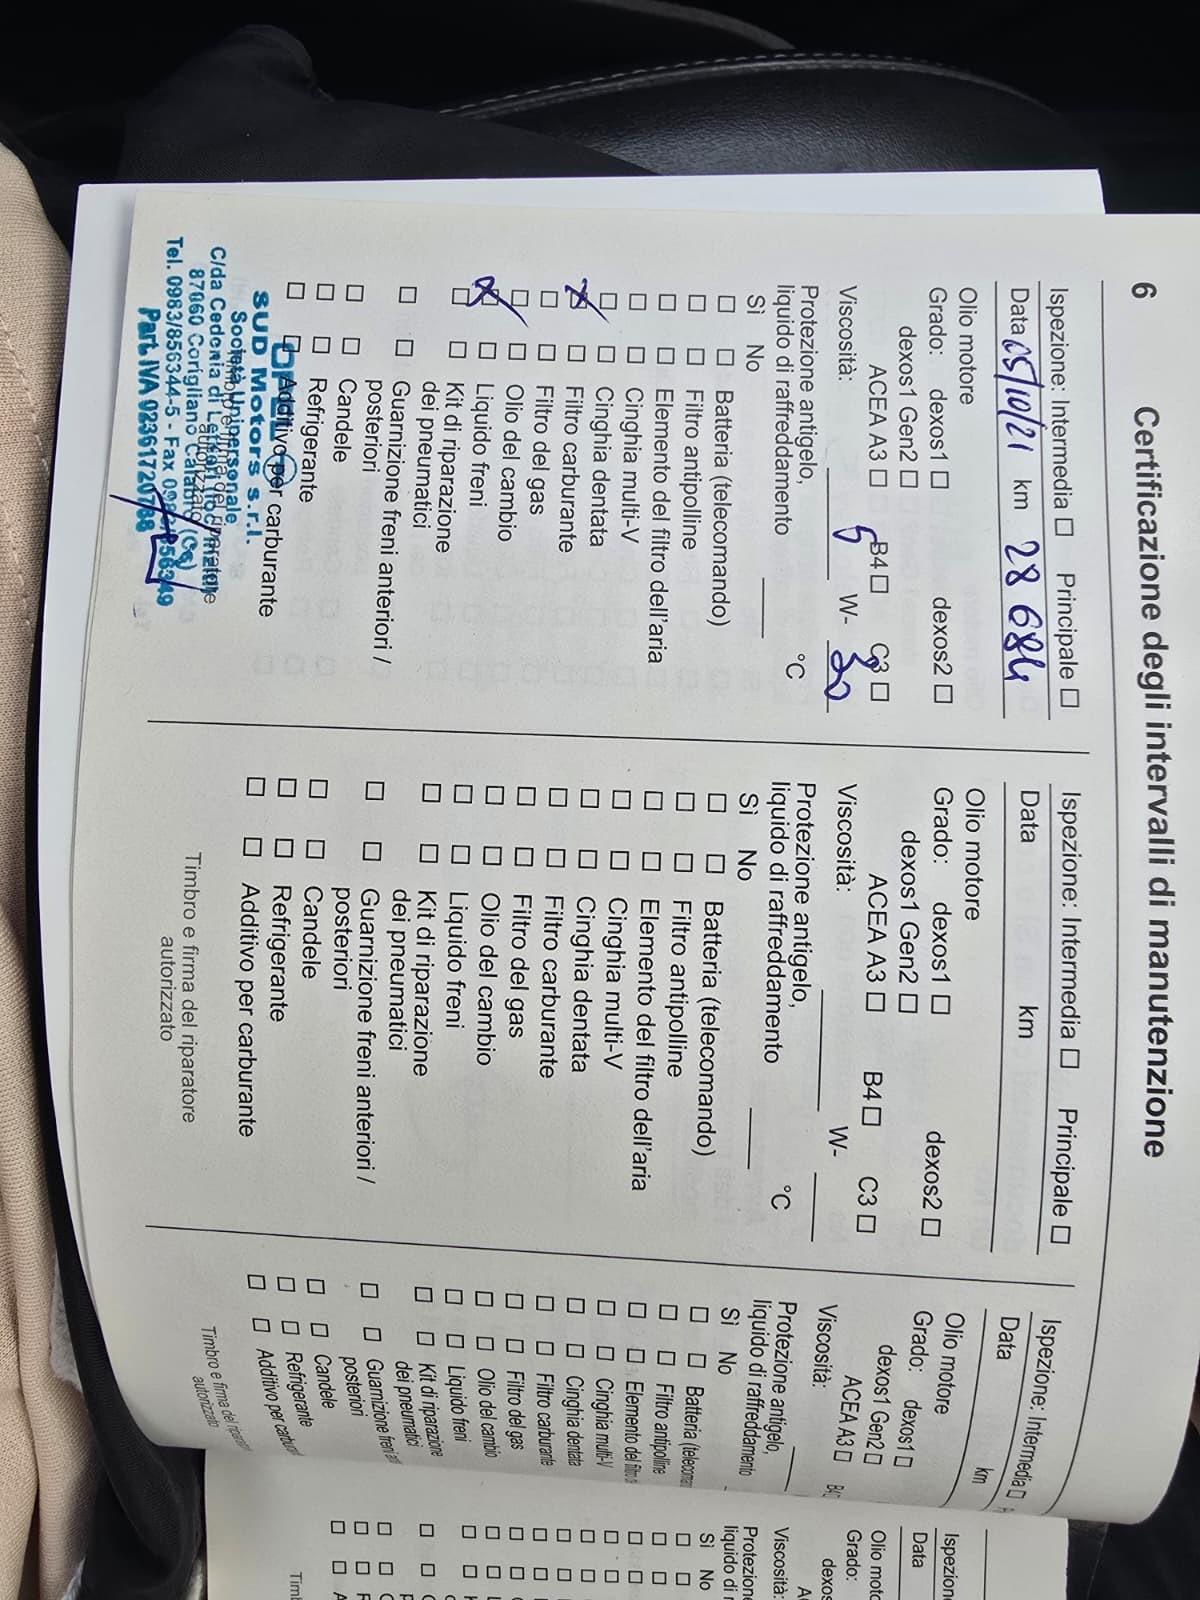 6 Certificazione degli intervalli di manutenzione
Ispezione: Intermedia ☐ Principale ☐
Data 05/10/21 km 28 684
Olio motore
Grado: dexos1 ☐ dexos2 ☐
dexos1 Gen2 ☐
ACEA A3 ☐ B4 ☐ C3 ☐
Viscosità: 5 W- 30
Protezione antigelo,
liquido di raffreddamento °C
Sì No
☐ ☐ Batteria (telecomando)
☐ ☐ Filtro antipolline
☐ ☐ Elemento del filtro dell'aria
☐ ☐ Cinghia multi-V
☐ ☐ Cinghia dentata
☒ ☐ Filtro carburante
☐ ☐ Filtro del gas
☐ ☐ Olio del cambio
☒ ☐ Liquido freni
☐ ☐ Kit di riparazione
dei pneumatici
☐ ☐ Guarnizione freni anteriori /
posteriori
☐ ☐ Candele
☐ ☐ Refrigerante
☐ ☐ Additivo per carburante
Timbro e firma del riparatore
autorizzato
OPEL
SUD Motors s.r.l.
Società Unipersonale
C/da Cedonia di
87060 Corigliano Calabro (Cs)
Tel. 0983/856344-5 - Fax 0983/856349
Part. IVA 02361720788
Ispezione: Intermedia ☐ Principale ☐
Data km
Olio motore
Grado: dexos1 ☐ dexos2 ☐
dexos1 Gen2 ☐
ACEA A3 ☐ B4 ☐ C3 ☐
Viscosità: W-
Protezione antigelo,
liquido di raffreddamento °C
Sì No
☐ ☐ Batteria (telecomando)
☐ ☐ Filtro antipolline
☐ ☐ Elemento del filtro dell'aria
☐ ☐ Cinghia multi-V
☐ ☐ Cinghia dentata
☐ ☐ Filtro carburante
☐ ☐ Filtro del gas
☐ ☐ Olio del cambio
☐ ☐ Liquido freni
☐ ☐ Kit di riparazione
dei pneumatici
☐ ☐ Guarnizione freni anteriori /
posteriori
☐ ☐ Candele
☐ ☐ Refrigerante
☐ ☐ Additivo per carburante
Timbro e firma del riparatore
autorizzato
Ispezione: Intermedia ☐
Data km
Olio motore
Grado: dexos1 ☐
dexos1 Gen2 ☐
ACEA A3 ☐
Viscosità:
Protezione antigelo,
liquido di raffreddamento
Sì No
☐ ☐ Batteria
☐ ☐ Filtro antipolline
☐ ☐ Elemento del
☐ ☐ Cinghia multi-V
☐ ☐ Cinghia dentata
☐ ☐ Filtro carburante
☐ ☐ Filtro del gas
☐ ☐ Olio del cambio
☐ ☐ Liquido freni
☐ ☐ Kit di riparazione
dei pneumatici
☐ ☐ Guarnizione freni
posteriori
☐ ☐ Candele
☐ ☐ Refrigerante
☐ ☐ Additivo per
Timbro e firma del
autorizzato
Ispezione
Data
Olio
Grado:
Viscosità:
Protezione
liquido di
Sì No